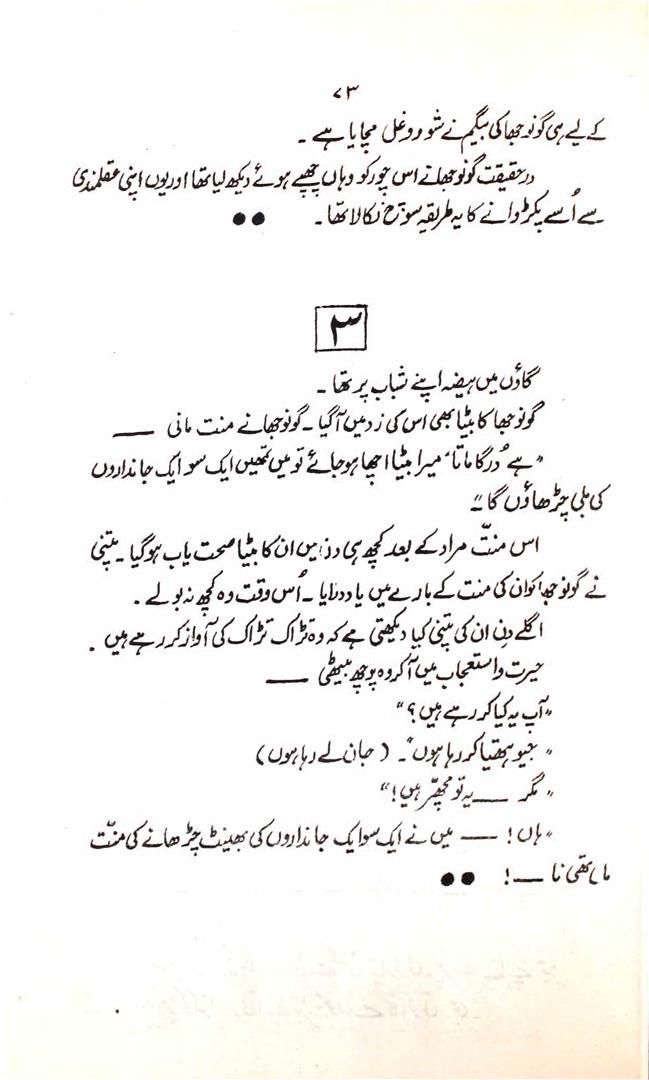 ۷۳
کے لیے ہی گونوجھا کی بیگم نے شور و غل مچایا ہے ۔
درحقیقت گونوجھا نے اس چور کو وہاں چھپے ہوئے دیکھ لیا تھا اور یوں اپنی عقلمندی
سے اُسے پکڑوانے کا یہ طریقہ سوچ نکالا تھا ۔ ●●
۳
گاؤں میں ہیضہ اپنے شباب پر تھا ۔
گونوجھا کا بیٹا بھی اس کی زد میں آگیا ۔ گونوجھا نے منت مانی ——
"ہے دُرگا ماتا' میرا بیٹا اچھا ہو جائے تو میں تمھیں ایک سو ایک جانداروں
کی بلی چڑھاؤں گا"۔
اس منّت مراد کے بعد کچھ ہی دنوں میں ان کا بیٹا صحت یاب ہوگیا ۔ پتنی
نے گونوجھا کو ان کی منت کے بارے میں یاد دلایا ۔ اُس وقت وہ کچھ نہ بولے ۔
اگلے دن ان کی پتنی کیا دیکھتی ہے کہ وہ تڑاک تڑاک کی آواز کر رہے ہیں ۔
حیرت و استعجاب میں آکر وہ پوچھ بیٹھی ——
"آپ یہ کیا کر رہے ہیں؟"
"جیو ہتھیا کر رہا ہوں"۔ (جان لے رہا ہوں)
"مگر —— یہ تو مچھّر ہیں!"
"ہاں! —— میں نے ایک سو ایک جانداروں کی بھینٹ چڑھانے کی منّت
مانی تھی نا ——! ●●